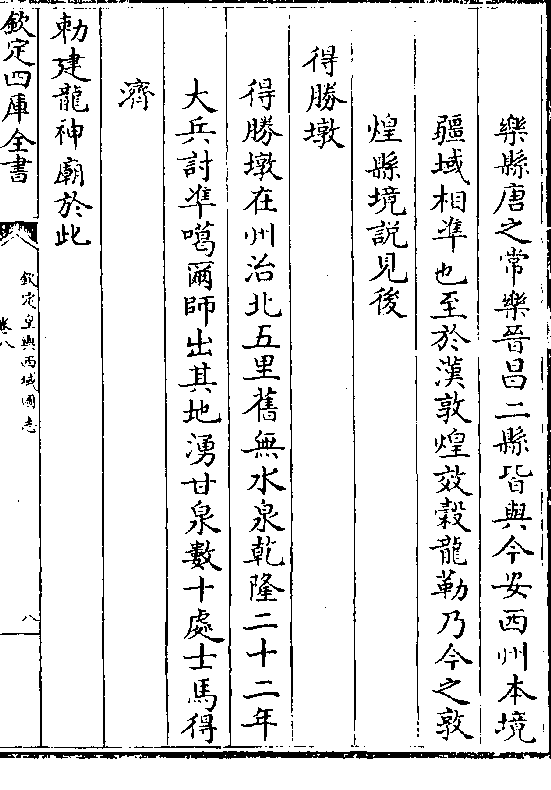 樂縣唐之常樂晉昌二縣皆與今安西州本境
疆域相準也至於漢敦煌效穀龍勒乃今之敦
煌縣境説見後
得勝墩
得勝墩在州治北五里舊無水泉乾隆二十二年
大兵討準噶爾師出其地湧甘泉數十處士馬得
濟
勅建龍神廟於此
欽定四庫全書
欽定皇輿西域圖志
卷八
八